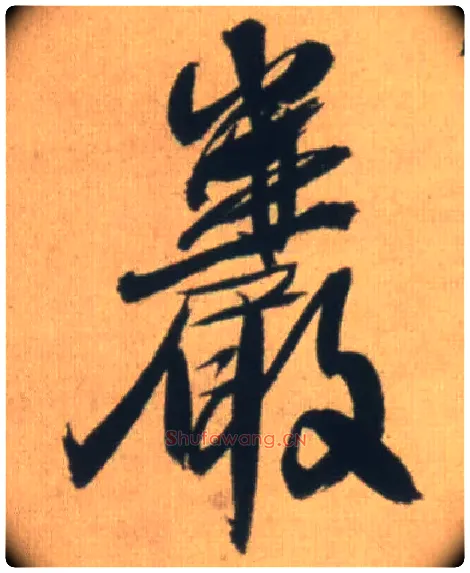 巖
Shufawang.CN